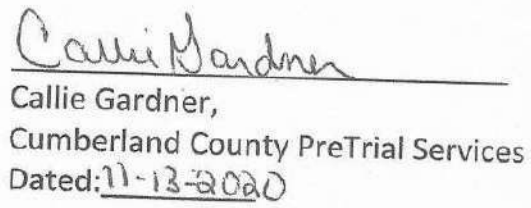 Callie Gardner
Callie Gardner,
Cumberland County PreTrial Services
Dated: 11-13-2020